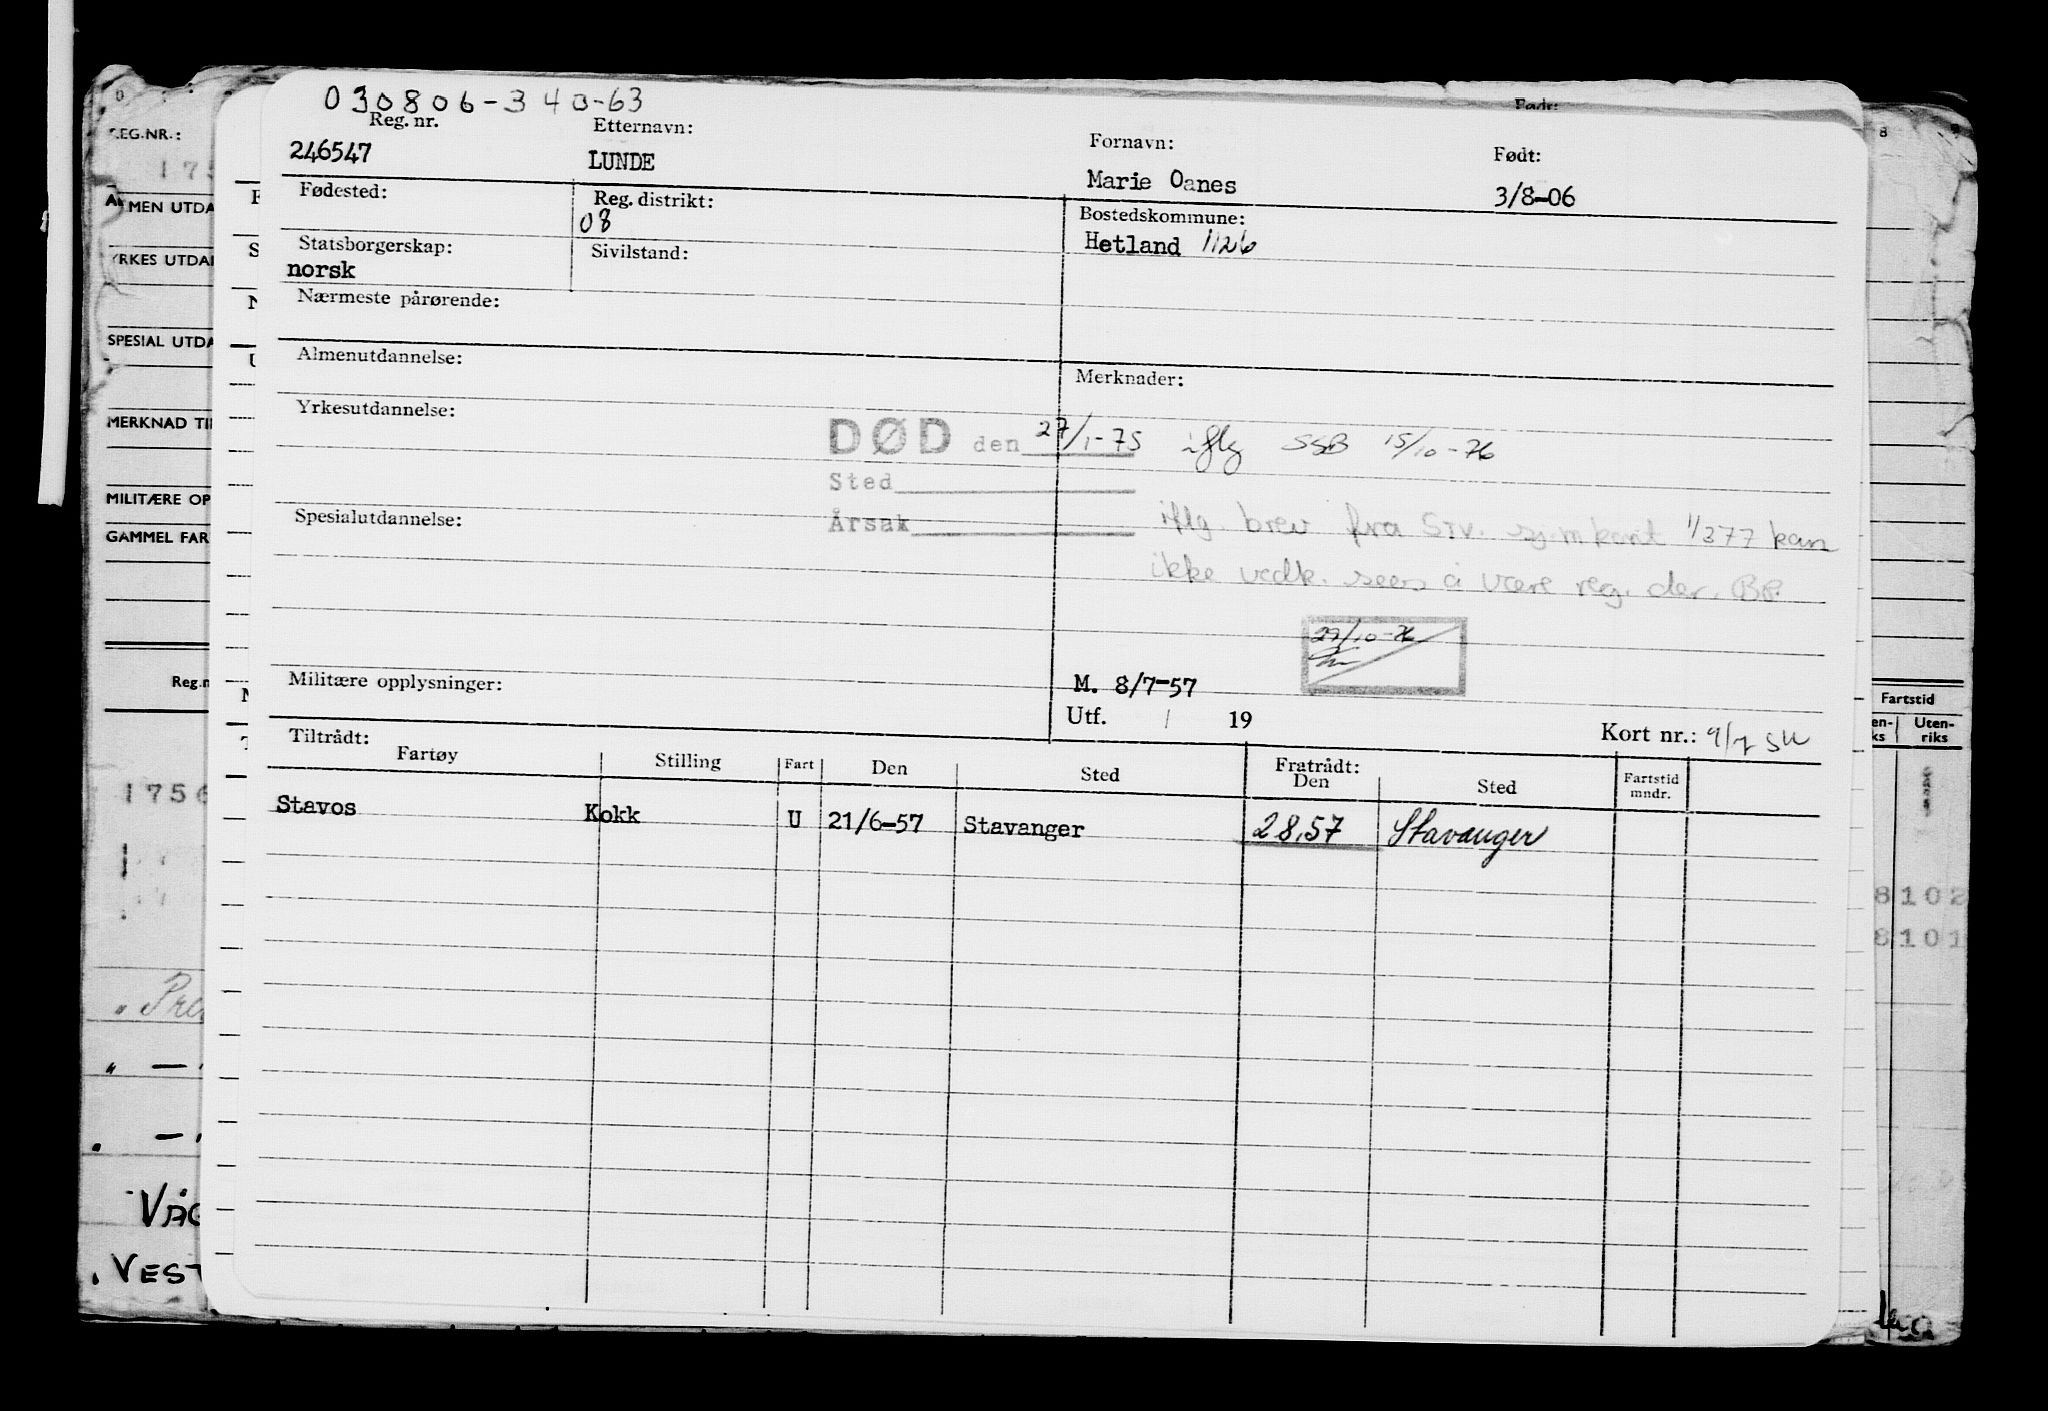 030806-340-63
Reg. nr. Etternavn: Fornavn: Født:
246547 LUNDE Marie Oanes 3/8-06
Fødested: Reg. distrikt: Bostedskommune:
08 Hetland 1126
Statsborgerskap: Sivilstand:
norsk
Nærmeste pårørende:
Almenutdannelse: Merknader:
Yrkesutdannelse:
DØD den 27/1-75 iflg SSB 15/10-76
Sted
Årsak
Spesialutdannelse: iflg. brev fra Stv. sj.mkont 1/377 kan
ikke vedk. sees å være reg. der. BP.
29/10-76
Militære opplysninger: M. 8/7-57
Utf. / 19 Kort nr.: 9/7 SW
Tiltrådt: Fratrådt:
Fartøy Stilling Fart Den Sted Den Sted Fartstid mndr.
Stavos Kokk U 21/6-57 Stavanger 28.57 Stavanger
REG.NR.:
175
ALMEN UTDA
YRKES UTDA
SPESIAL UTDA
MERKNAD TI
MILITÆRE OP
GAMMEL FAR
Reg.n
1756
" Pre
VÅG
VEST
Født:
8
Fartstid
en-ks Uten-riks
8102
8101